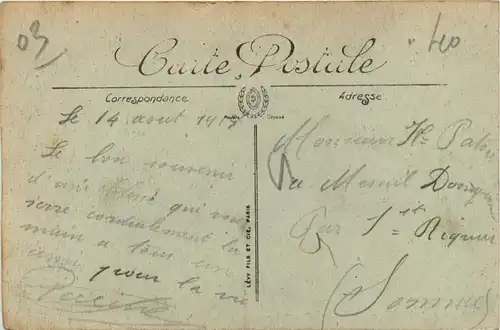 03
40
Carte Postale
Correspondance
Adresse
Marque Déposé
Le 14 aout 191
Le bon souvenir
d'un blessé qui vous
serre cordialement la
main a tous un
ami pour la vie
Monsieur
a Mesnil Domqueur
Par St Riquier
(Somme)
LÉVY FILS ET CIE, PARIS